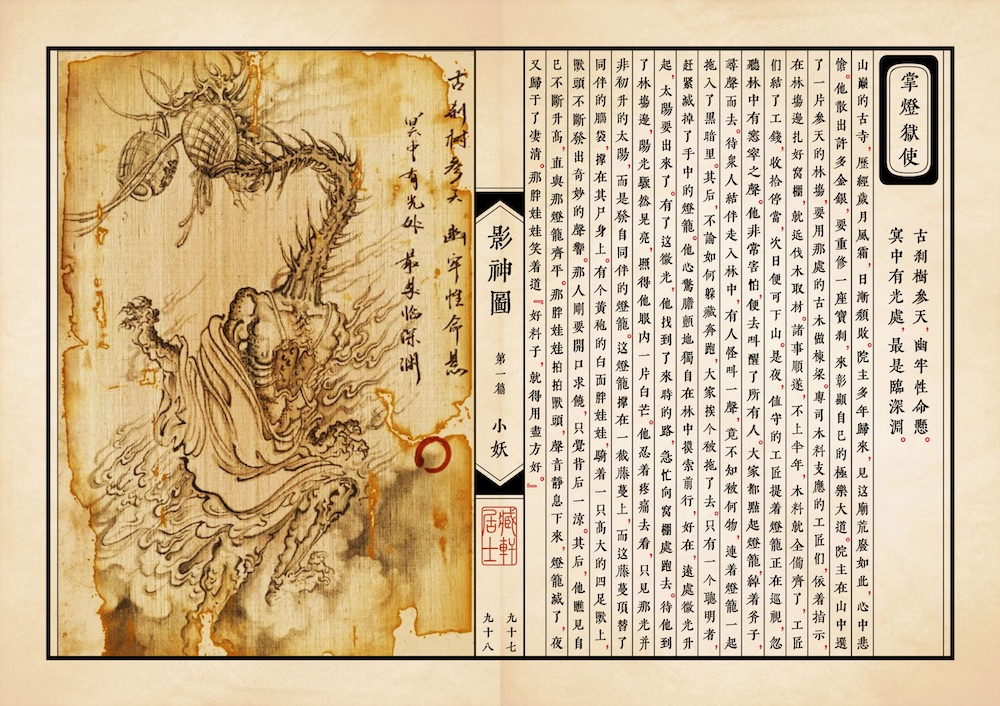 掌燈獄使
古刹樹參天，幽牢性命懸。
冥中有光處，最是臨深淵。
山巔的古寺，歷經歲月風霜，日漸頹敗。院主多年歸來，見這廟荒廢如此，心中悲
愴。他散出許多金銀，要重修一座寶刹，來彰顯自己的極樂大道。院主在山中選
了一片參天的林場，要用那處的古木做棟梁。專司木料支應的工匠們，依着指示，
在林場邊扎好窩棚，就近伐木取材。諸事順遂，不上半年，木料就全備齊了，工匠
們結了工錢，收拾停當，次日便可下山。是夜，值守的工匠提着燈籠正在巡視，忽
聽林中有窸窣之聲。他非常害怕，便去叫醒了所有人。大家都點起燈籠，綽着斧子，
尋聲而去。待衆人結伴走入林中，有人怪叫一聲，竟不知被何物，連着燈籠一起
拖入了黑暗里。其后，不論如何躲藏奔跑，大家挨个被拖了去。只有一个聰明者，
赶緊滅掉了手中的燈籠。他心驚膽顫地獨自在林中摸索前行，好在，遠處微光升
起，太陽要出來了。有了這微光，他找到了來時的路，急忙向窩棚處跑去。待他到
了林場邊，陽光驟然晃亮，照得他眼内一片白芒。他忍着疼痛去看，只見那光并
非初升的太陽，而是發自同伴的燈籠。這燈籠撑在一截藤蔓上，而這藤蔓頂替了
同伴的腦袋，撑在其尸身上。有个黄袍的白面胖娃娃，騎着一只高大的四足獸上，
獸頭不斷發出奇妙的聲響。那人剛要開口求饒，只覺背后一涼。其后，他瞧見自
己不斷升高，直與那燈籠齊平。那胖娃娃拍拍獸頭，聲音靜息下來，燈籠滅了，夜
又歸于了凄清。那胖娃娃笑着道『好料子，就得用盡方好。』
影神圖
第一篇
小妖
藏軒
居士
九十七
九十八
古刹樹參天 幽牢性命懸
冥中有光処 最是臨深淵